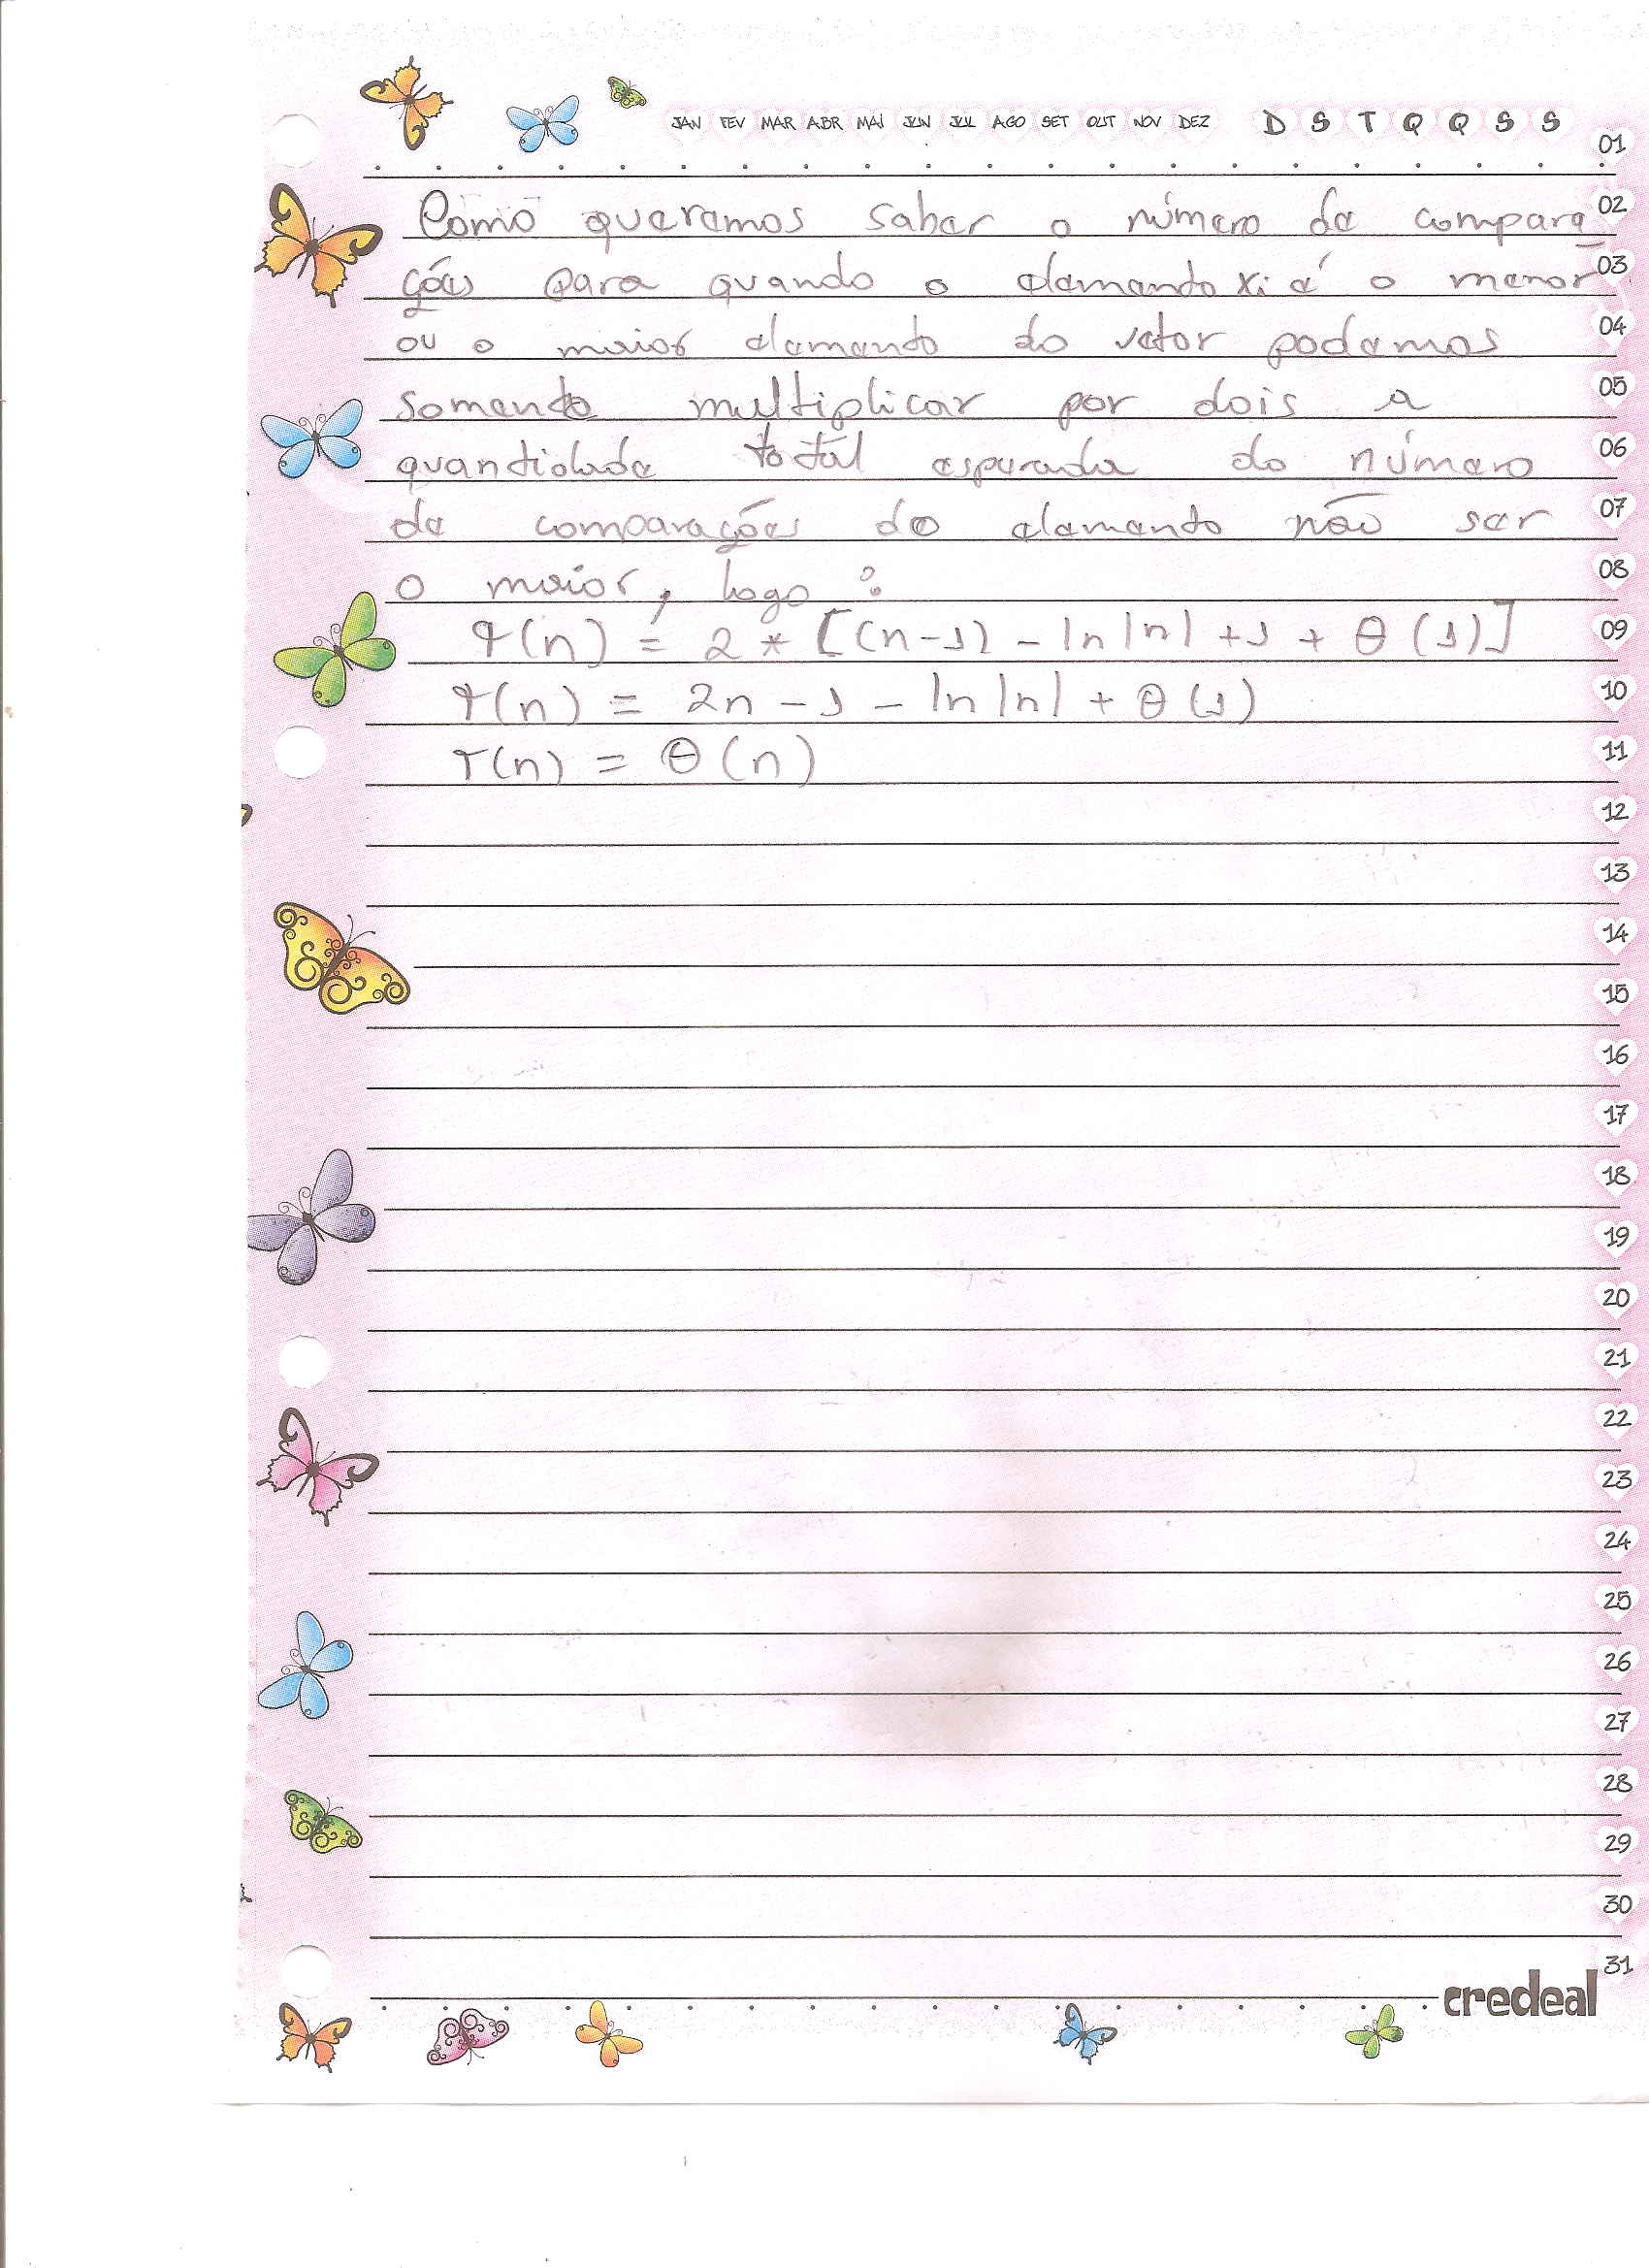 JAN FEV MAR ABR MAI JUN JUL AGO SET OUT NOV DEZ D S T Q Q S S
01
Como queremos saber o número de compara 02
ções para quando o elemento xi é o menor 03
ou o maior elemento do vetor podemos 04
somente multiplicar por dois a 05
quantidade total esperada do número 06
de comparações do elemento não ser 07
o maior, logo: 08
T(n) = 2 * [(n-1) - ln|n| + 1 + θ(1)] 09
T(n) = 2n - 1 - ln|n| + θ(1) 10
T(n) = θ(n) 11
12
13
14
15
16
17
18
19
20
21
22
23
24
25
26
27
28
29
30
31
credeal